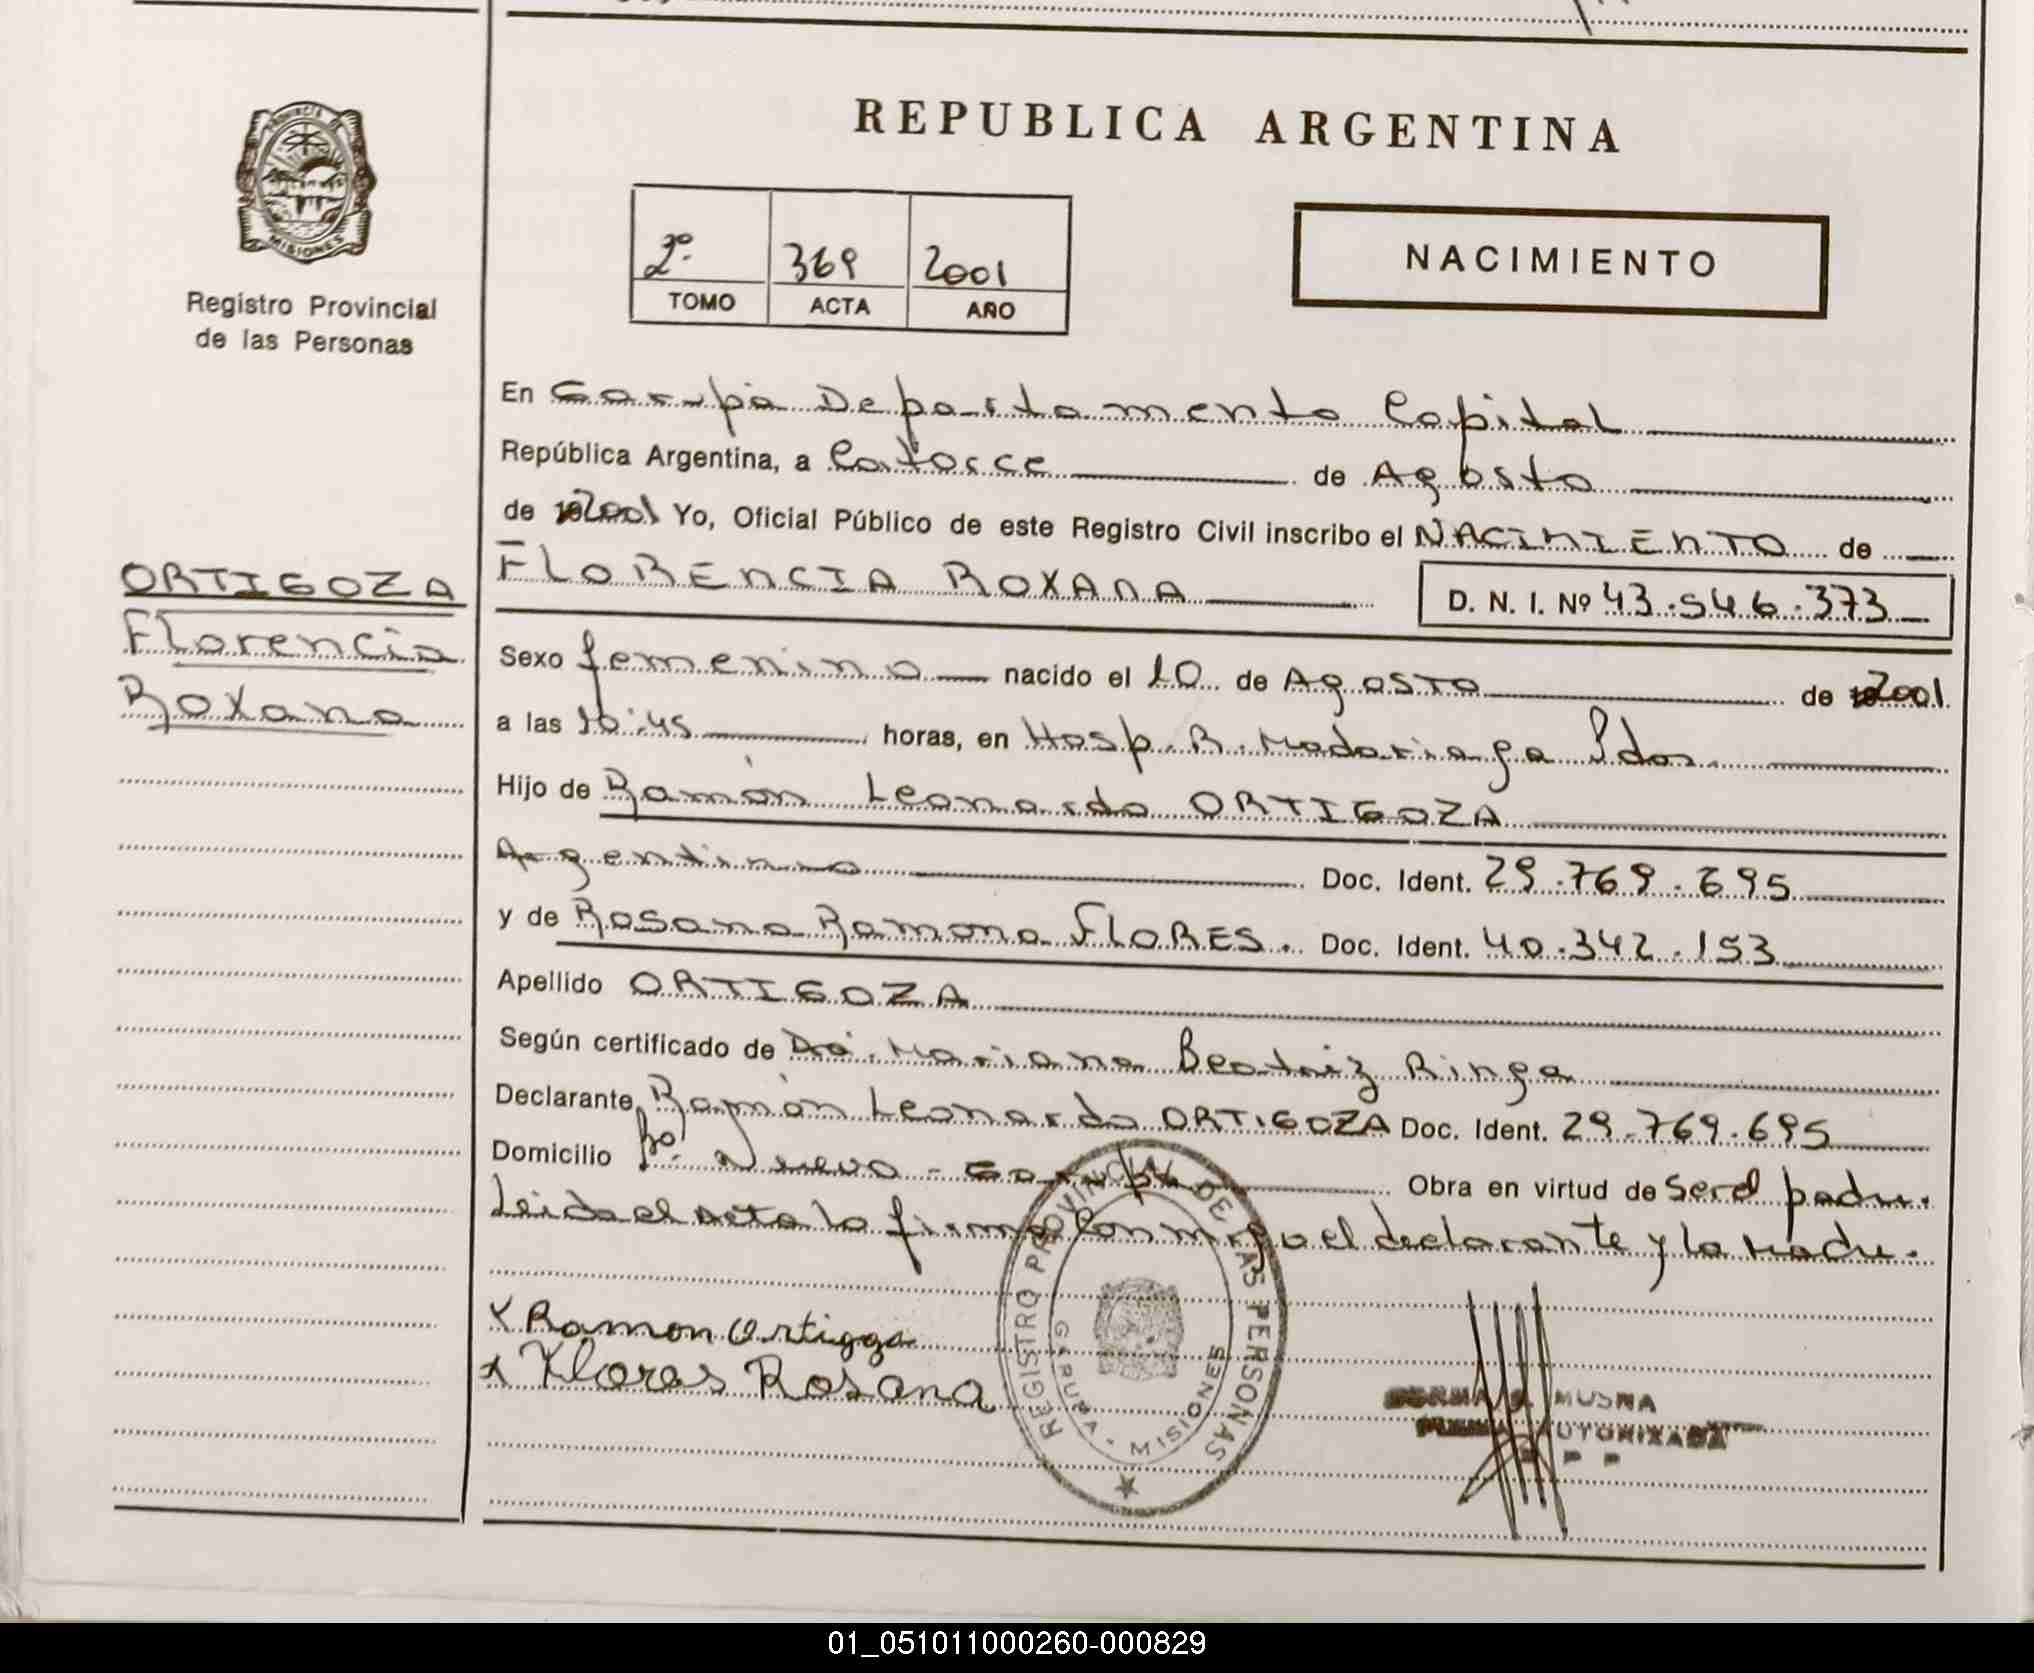 REPUBLICA ARGENTINA
PROVINCIA DE
MISIONES
Registro Provincial
de las Personas
2º 369 2001
TOMO ACTA AÑO
NACIMIENTO
En Garupá Departamento Capital
República Argentina, a Catorce de Agosto
de 2001 Yo, Oficial Público de este Registro Civil inscribo el NACIMIENTO de
FLORENCIA ROXANA D. N. I. Nº 43.546.373
ORTIGOZA
Florencia
Roxana
Sexo femenino nacido el 10 de Agosto de 2001
a las 10:45 horas, en Hosp. R. Madariaga Pdas.
Hijo de Ramón Leonardo ORTIGOZA
Argentino Doc. Ident. 29.769.695
y de Rosana Ramona FLORES. Doc. Ident. 40.342.153
Apellido ORTIGOZA
Según certificado de Dra. Mariana Beatriz Ringa
Declarante Ramón Leonardo ORTIGOZA Doc. Ident. 29.769.695
Domicilio Bº. Nuevo - Garupá Obra en virtud de Ser el padre.
Leida el acta la firma Conmigo el declarante y la Madre.
x Ramon Ortigoza
x Flores Rosana
REGISTRO PROVINCIAL DE LAS PERSONAS
GARUPA - MISIONES
MUSNA
AUTORIZADA
01_051011000260-000829